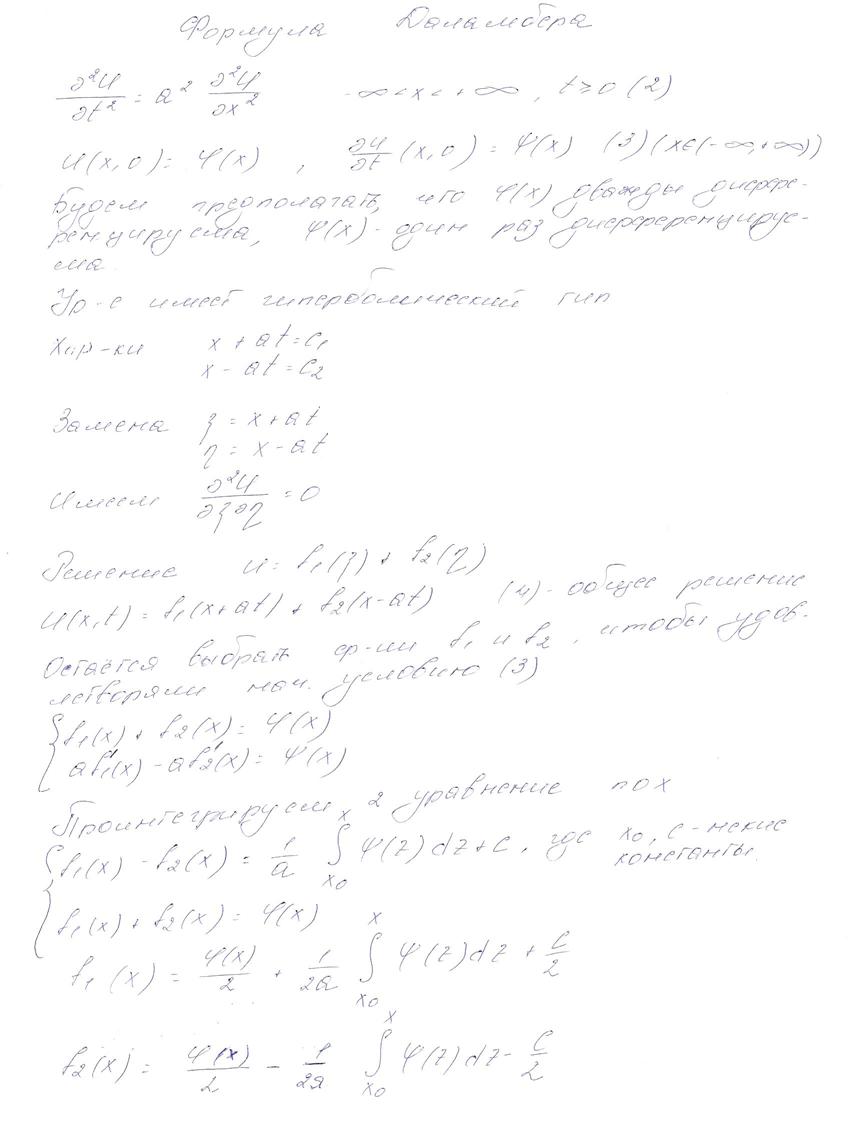 Формула Даламбера
∂²U/∂t² = a² ∂²U/∂x²   -∞<x<+∞, t≥0 (2)
U(x,0) = φ(x) , ∂U/∂t (x,0) = ψ(x) (3) (x∈(-∞,+∞))
Будем предполагать, что φ(x) дважды диффе-
ренцируема, ψ(x) - один раз дифференцируе-
ма.
Ур-е имеет гиперболический тип
Хар-ки x + at = c₁
x - at = c₂
Замена ξ = x + at
η = x - at
Имеем ∂²U/∂ξ∂η = 0
Решение U = f₁(ξ) + f₂(η)
U(x,t) = f₁(x+at) + f₂(x-at) (4) - общее решение
Остаётся выбрать ф-ии f₁ и f₂, чтобы удов-
летворяли нач. условию (3)
{ f₁(x) + f₂(x) = φ(x)
af₁'(x) - af₂'(x) = ψ(x)
Проинтегрируем 2 уравнение по x
{ f₁(x) - f₂(x) = 1/a ∫_{x₀}^{x} ψ(z)dz + C, где x₀, C - некие
константы.
f₁(x) + f₂(x) = φ(x)
f₁(x) = φ(x)/2 + 1/2a ∫_{x₀}^{x} ψ(z)dz + C/2
f₂(x) = φ(x)/2 - 1/2a ∫_{x₀}^{x} ψ(z)dz - C/2